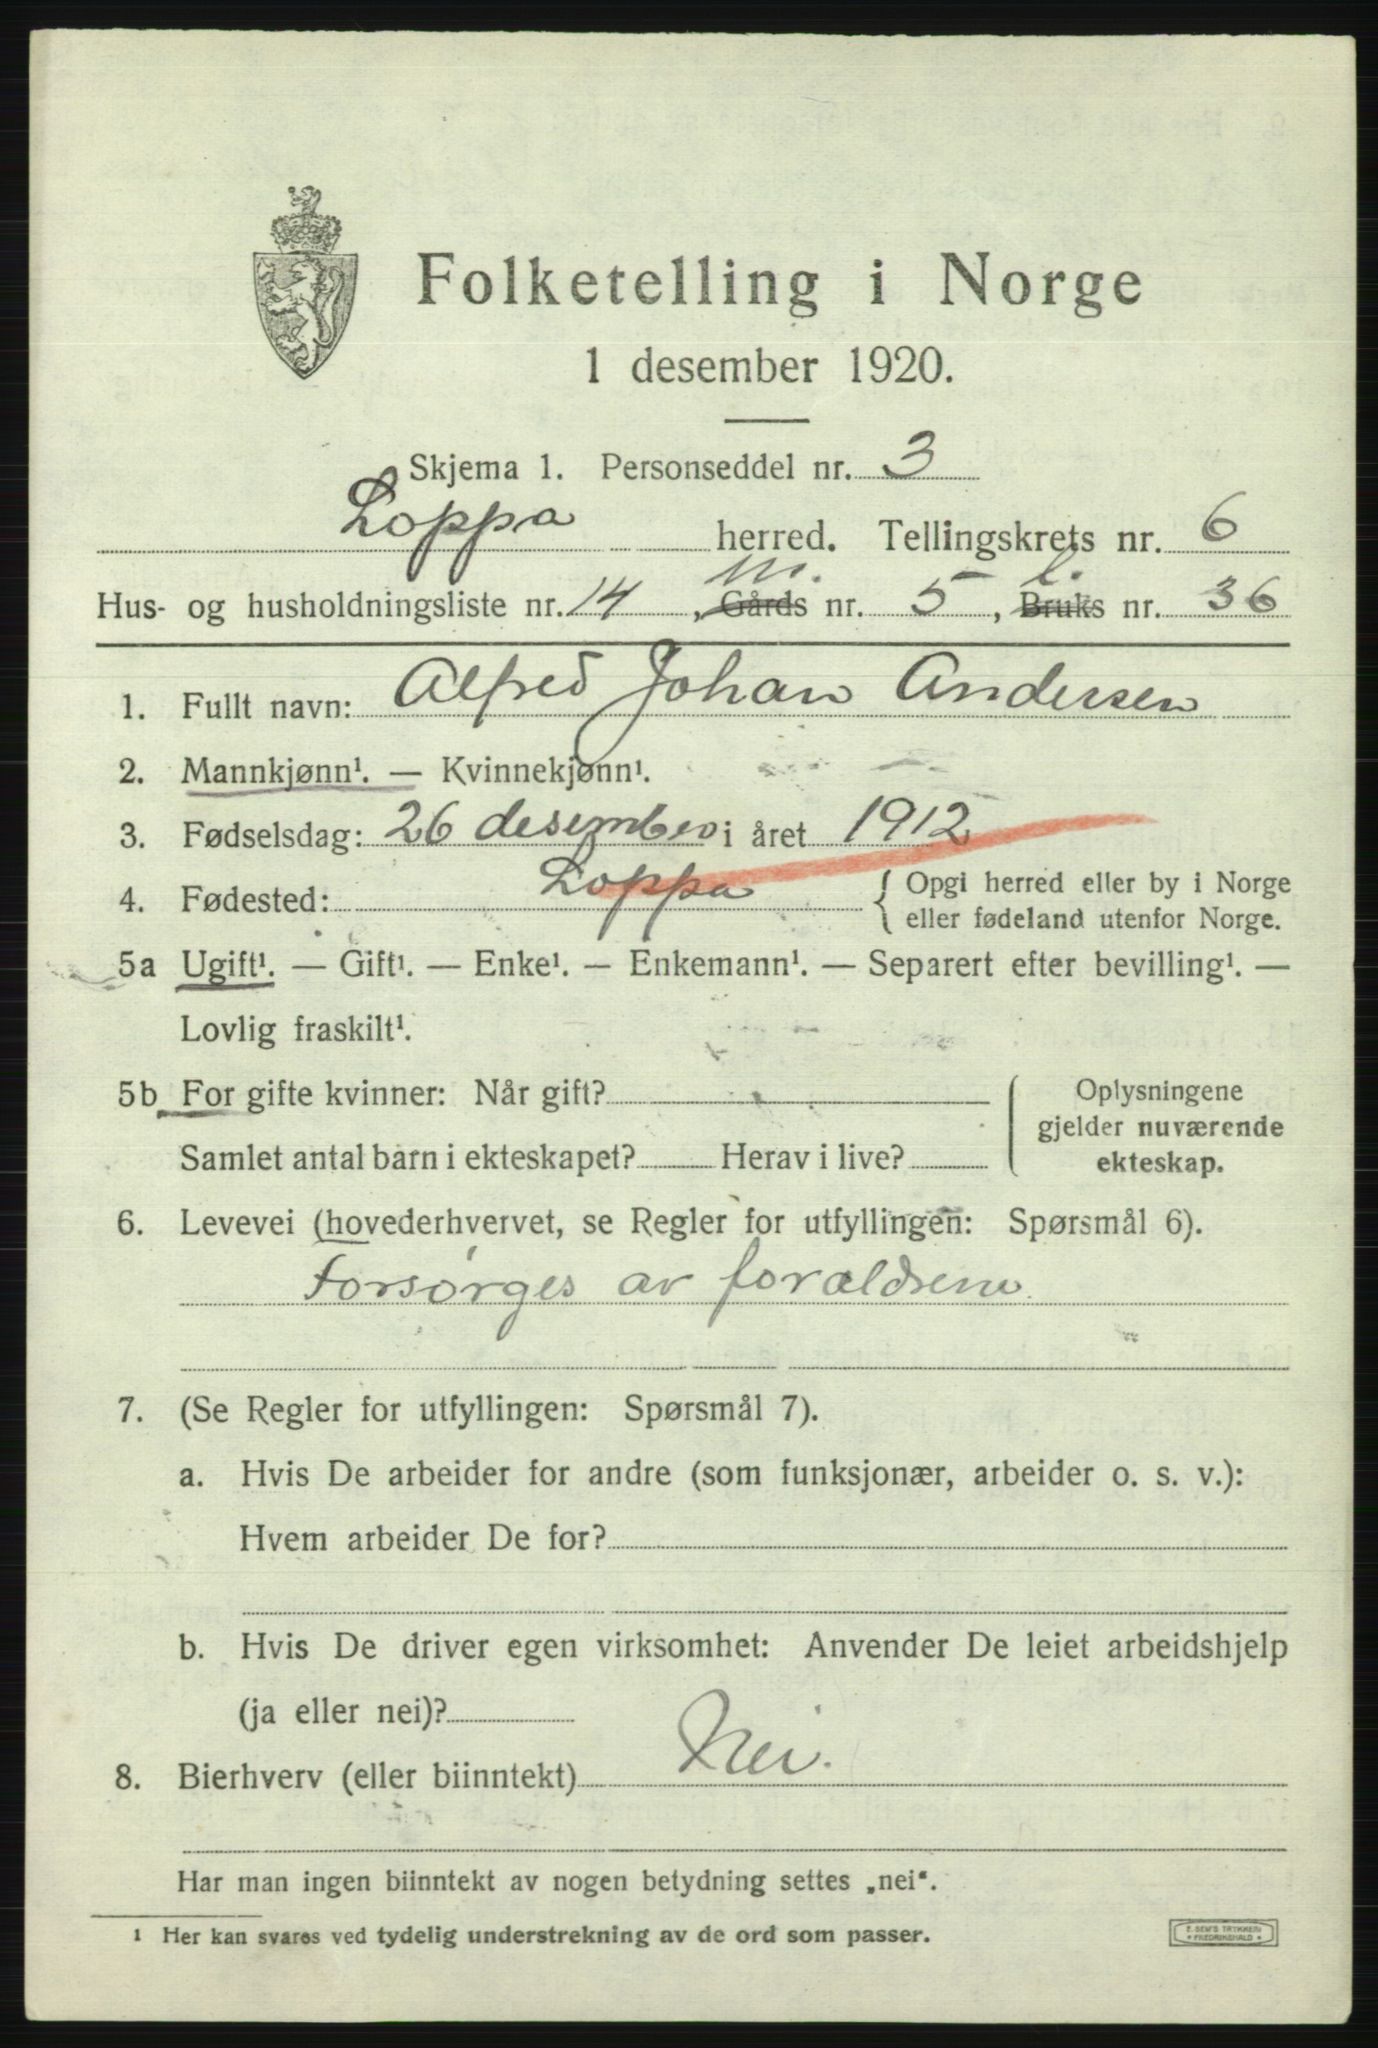 Folketelling i Norge
1 desember 1920.
Skjema 1. Personseddel nr. 3
Loppa herred. Tellingskrets nr. 6
m. l.
Hus- og husholdningsliste nr. 14, Gårds nr. 5, Bruks nr. 36
1. Fullt navn: Alfred Johan Andersen
2. Mannkjønn¹. — Kvinnekjønn¹.
3. Fødselsdag: 26 desember i året 1912
4. Fødested: Loppa { Opgi herred eller by i Norge
eller fødeland utenfor Norge.
5a Ugift¹. — Gift¹. — Enke¹. — Enkemann¹. — Separert efter bevilling¹. —
Lovlig fraskilt¹.
5b For gifte kvinner: Når gift? Oplysningene
gjelder nuværende
Samlet antal barn i ekteskapet? Herav i live? ekteskap.
6. Levevei (hovederhvervet, se Regler for utfyllingen: Spørsmål 6).
Forsørges av forældrene.
7. (Se Regler for utfyllingen: Spørsmål 7).
a. Hvis De arbeider for andre (som funksjonær, arbeider o. s. v.):
Hvem arbeider De for?
b. Hvis De driver egen virksomhet: Anvender De leiet arbeidshjelp
(ja eller nei)?
8. Bierhverv (eller biinntekt) Nei.
Har man ingen biinntekt av nogen betydning settes „nei“.
1 Her kan svares ved tydelig understrekning av de ord som passer.
E. SEM'S TRYKKERI
FREDRIKSHALD